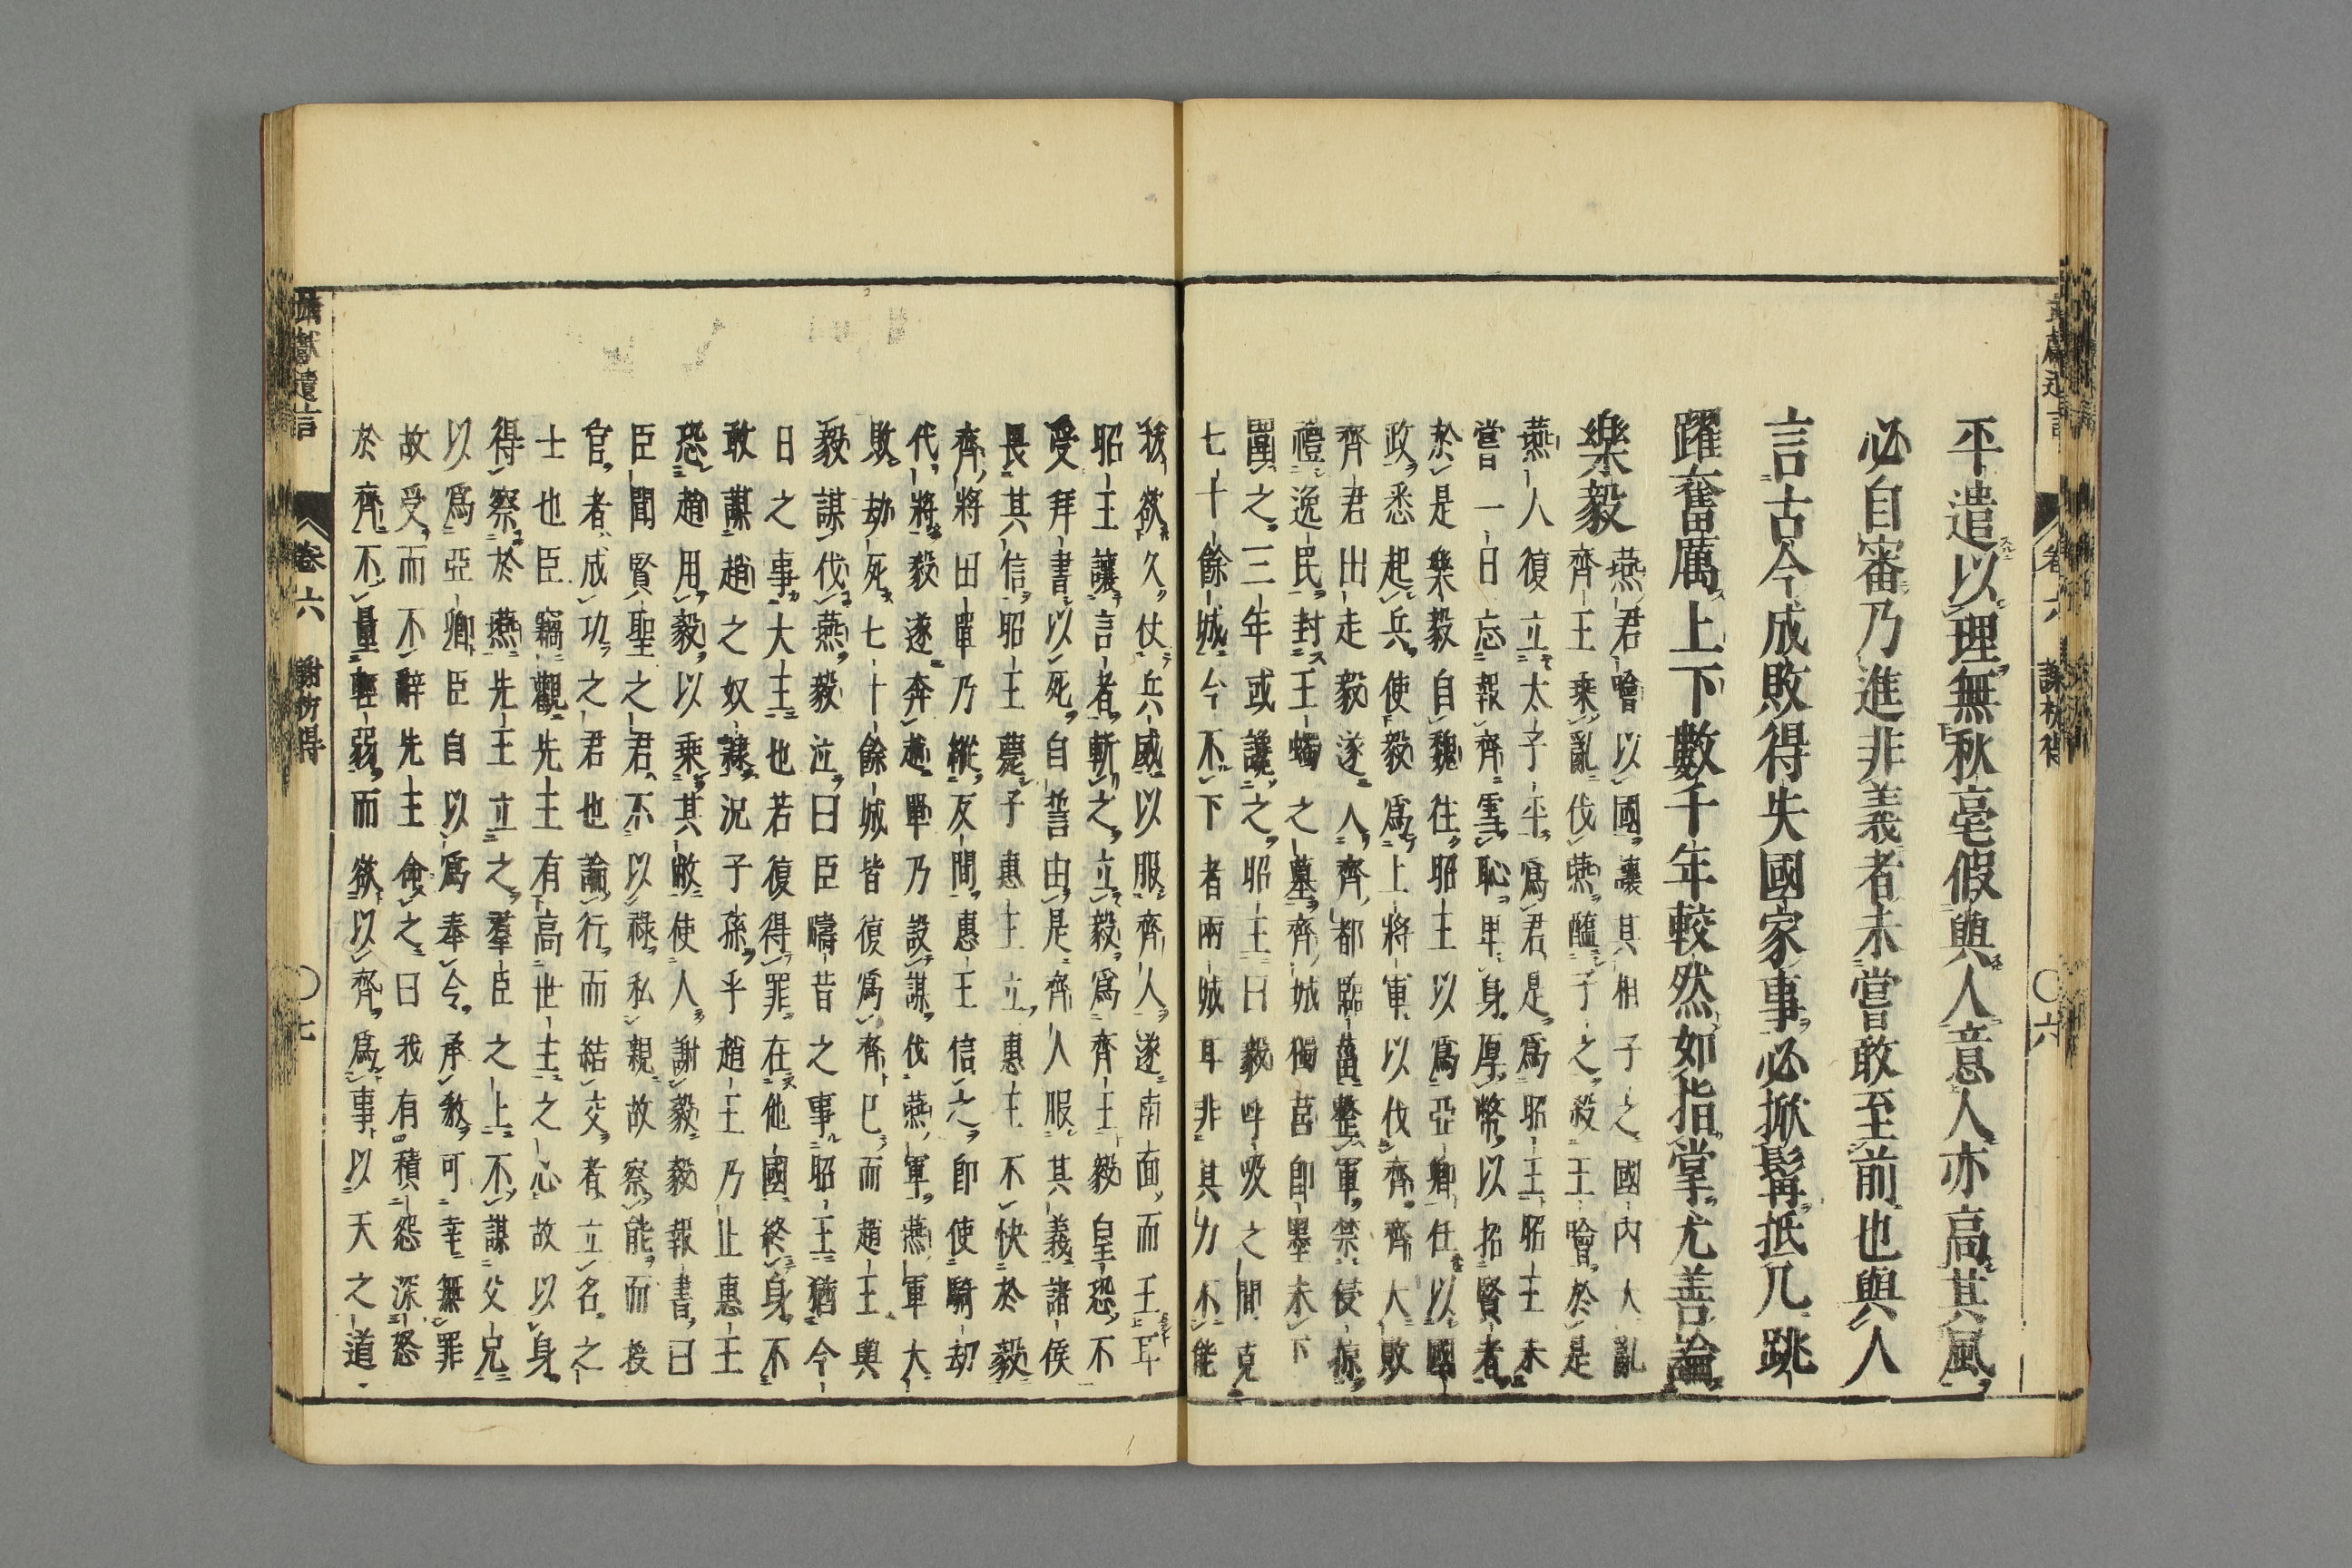 平遣以理無秋毫假與人意人亦高其風
必自審乃進非義者未嘗敢至前也與人
言古今成敗得失國家事必掀髯抵几跳
躍奮厲上下數千年較然如指掌尤善論
樂毅
燕君噲以國讓其相子之國內人亂
齊王乘亂伐燕醢子之殺王噲於是
燕人復立太子平爲君是爲昭王昭王未
嘗一日忘報齊雪恥卑身厚幣以招賢者
於是樂毅自魏往昭王以爲亞卿任以國
政悉起兵使毅爲上將軍以伐齊齊人敗
齊君出走毅遂入齊都臨菑整軍禁侵掠
禮逸民封王蠋之墓齊城獨莒即墨未下
圍之三年或讒之昭王曰毅呼吸之間克
七十餘城今不下者兩城耳非其力不能
我欲久仗兵威以服齊人遂南面而王耳
昭王讓言者斬之立毅爲齊王毅皇恐不
受拜書以死自誓由是齊人服其義諸侯
畏其信昭王薨子惠王立惠王不快於毅
齊將田單乃縱反間惠王信之即使騎劫
代將毅遂奔趙單乃設謀伐燕軍燕軍大
敗劫死七十餘城皆復爲齊已而趙王與
毅謀伐燕毅泣曰臣疇昔之事昭王猶今
日之事大王也若復得罪在他國終身不
敢謀趙之奴隸況子孫乎趙王乃止惠王
恐趙用毅以乘其敝使人謝毅毅報書曰
臣聞賢聖之君不以祿私親故察能而授
官者成功之君也論行而結交者立名之
士也臣竊觀先王有高世主之心故以身
得察於燕先王立之羣臣之上不謀父兄
以爲亞卿臣自以爲奉令承敎可幸無罪
故受而不辭先王命之曰我有積怨深怒
於齊不量輕弱而欲以齊爲事以天之道
卷六
謝枋得
○六
靖獻遺言
卷六
謝枋得
○七